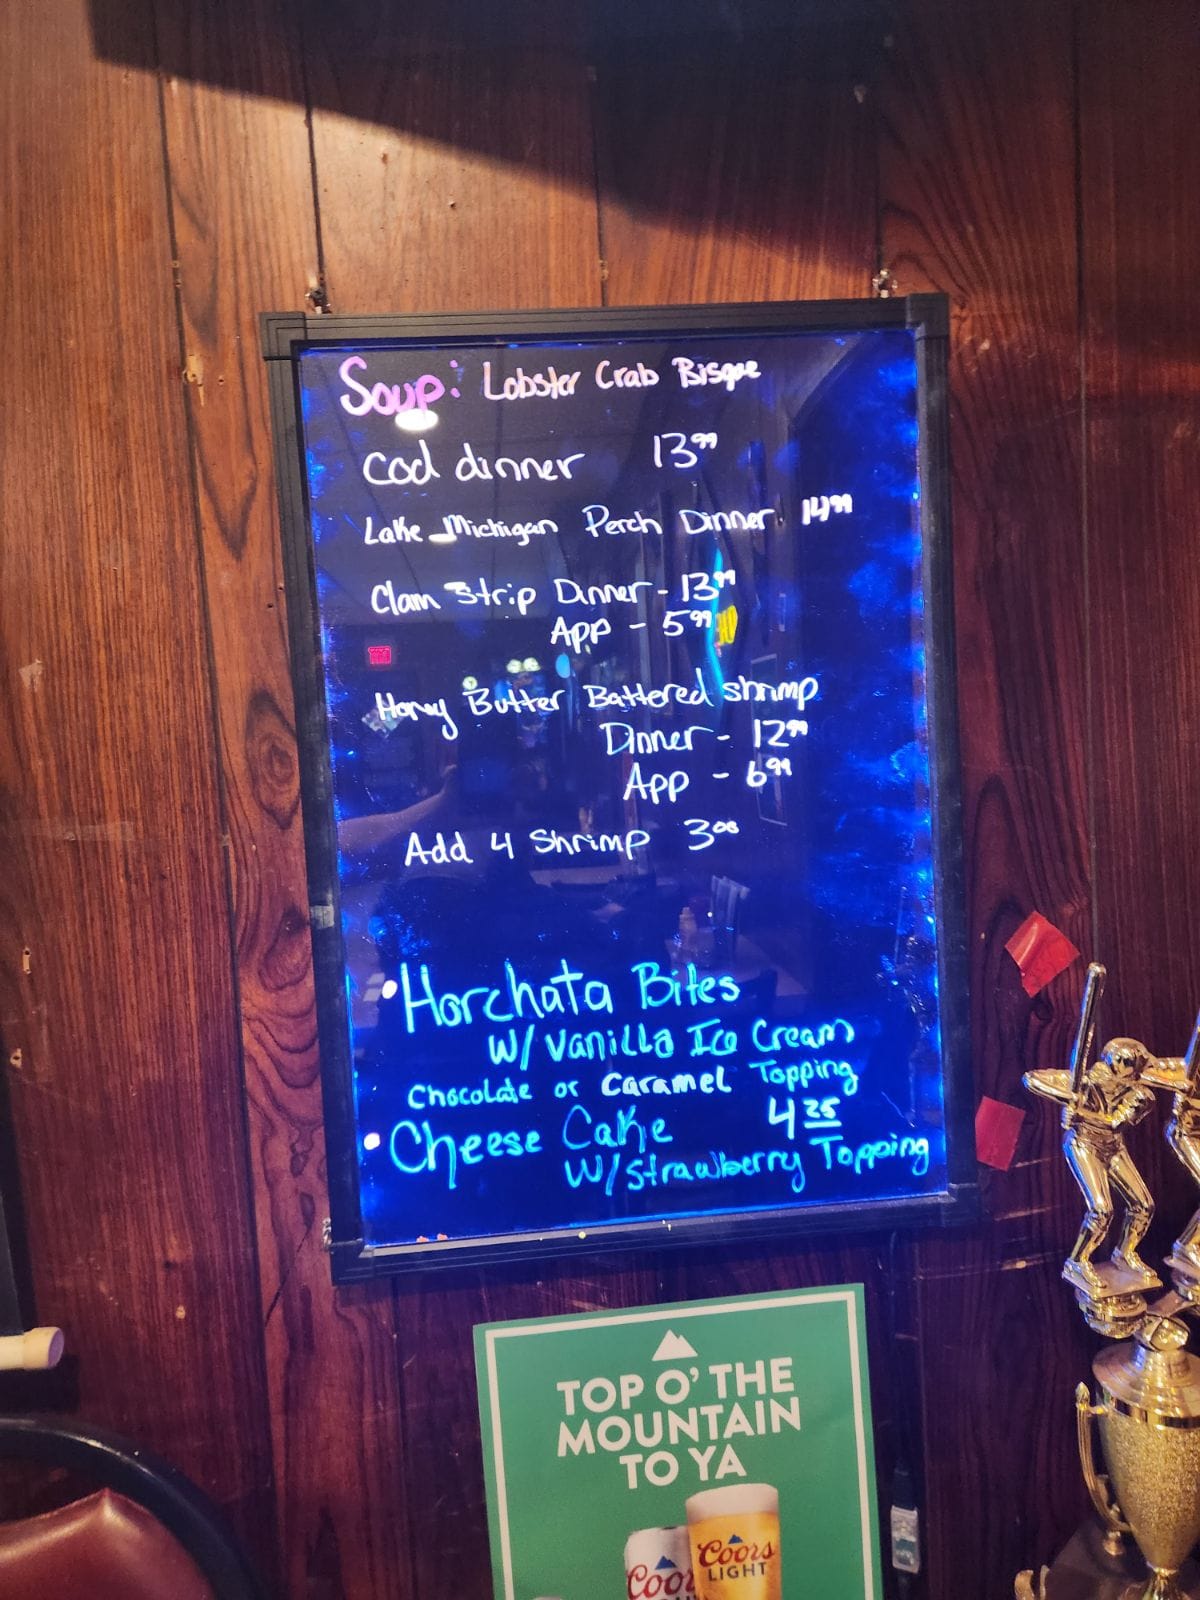 Soup: Lobster Crab Bisque
Cod dinner 13.99
Lake Michigan Perch Dinner 14.99
Clam Strip Dinner - 13.99
App - 5.99
Honey Butter Battered shrimp
Dinner - 12.99
App - 6.99
Add 4 Shrimp 3.00
• Horchata Bites
W/ Vanilla Ice Cream
Chocolate or Caramel Topping
4.25
• Cheese Cake
W/ Strawberry Topping
TOP O' THE
MOUNTAIN
TO YA
Coors
LIGHT